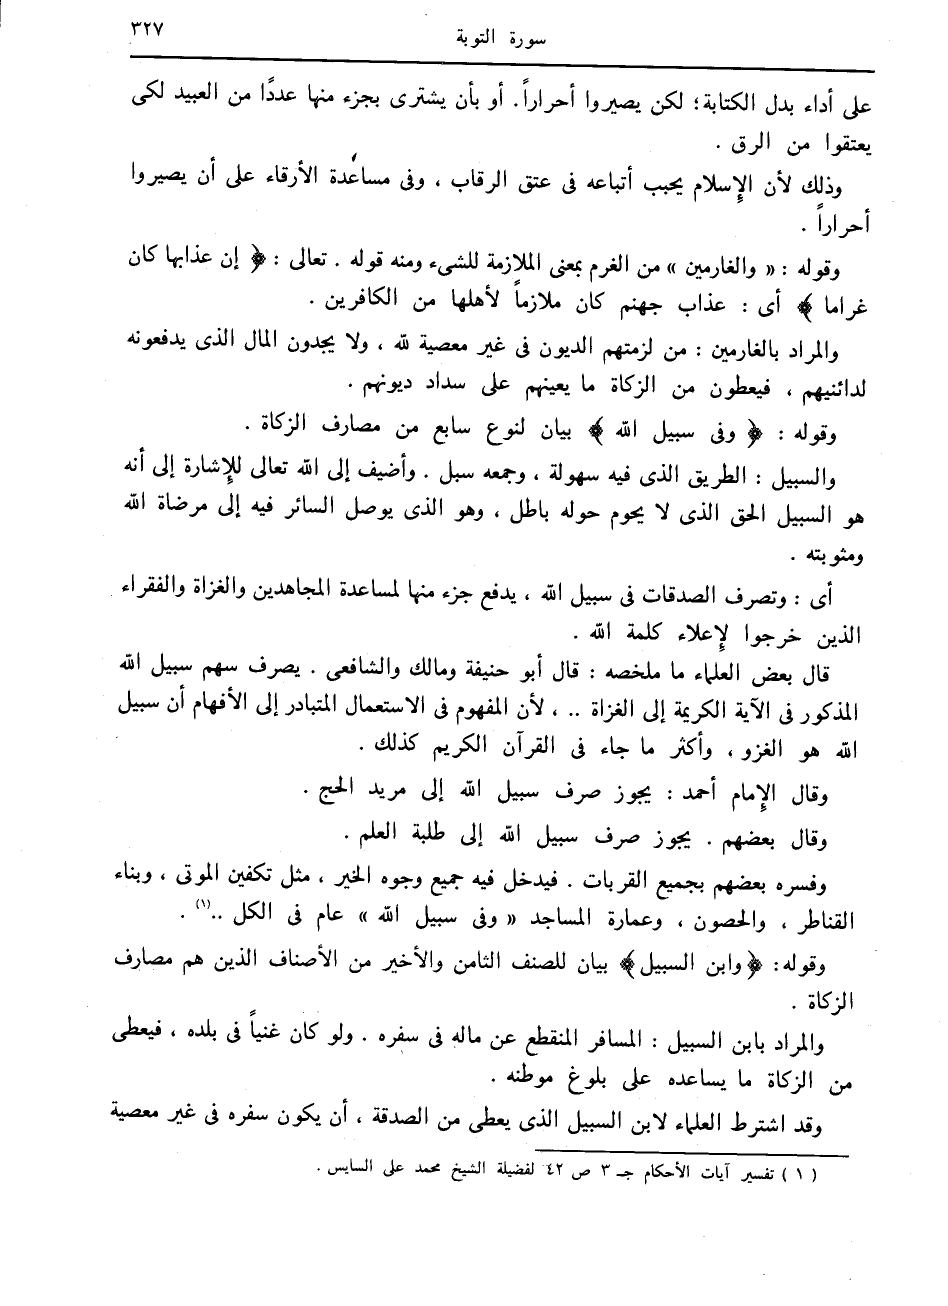 سورة التوبة ٣٢٧
على أداء بدل الكتابة؛ لكن يصيروا أحراراً. أو بأن يشترى بجزء منها عددًا من العبيد لكى
يعتقوا من الرق .
وذلك لأن الإسلام يحبب أتباعه فى عتق الرقاب ، وفى مساعدة الأرقاء على أن يصيروا
أحراراً .
وقوله : « والغارمين » من الغرم بمعنى الملازمة للشىء ومنه قوله . تعالى : ﴿ إن عذابها كان
غراما ﴾ أى : عذاب جهنم كان ملازماً لأهلها من الكافرين .
والمراد بالغارمين : من لزمتهم الديون فى غير معصية لله ، ولا يجدون المال الذى يدفعونه
لدائنيهم ، فيعطون من الزكاة ما يعينهم على سداد ديونهم .
وقوله : ﴿ وفى سبيل الله ﴾ بيان لنوع سابع من مصارف الزكاة .
والسبيل : الطريق الذى فيه سهولة ، وجمعه سبل . وأضيف إلى الله تعالى للإشارة إلى أنه
هو السبيل الحق الذى لا يحوم حوله باطل ، وهو الذى يوصل السائر فيه إلى مرضاة الله
ومثوبته .
أى : وتصرف الصدقات فى سبيل الله ، يدفع جزء منها لمساعدة المجاهدين والغزاة والفقراء
الذين خرجوا لإعلاء كلمة الله .
قال بعض العلماء ما ملخصه : قال أبو حنيفة ومالك والشافعى . يصرف سهم سبيل الله
المذكور فى الآية الكريمة إلى الغزاة .. ، لأن المفهوم فى الاستعمال المتبادر إلى الأفهام أن سبيل
الله هو الغزو ، وأكثر ما جاء فى القرآن الكريم كذلك .
وقال الإمام أحمد : يجوز صرف سبيل الله إلى مريد الحج .
وقال بعضهم . يجوز صرف سبيل الله إلى طلبة العلم .
وفسره بعضهم بجميع القربات . فيدخل فيه جميع وجوه الخير ، مثل تكفين الموتى ، وبناء
القناطر ، والحصون ، وعمارة المساجد « وفى سبيل الله » عام فى الكل ..(١) .
وقوله: ﴿وابن السبيل﴾ بيان للصنف الثامن والأخير من الأصناف الذين هم مصارف
الزكاة .
والمراد بابن السبيل : المسافر المنقطع عن ماله فى سفره . ولو كان غنياً فى بلده ، فيعطى
من الزكاة ما يساعده على بلوغ موطنه .
وقد اشترط العلماء لابن السبيل الذى يعطى من الصدقة ، أن يكون سفره فى غير معصية
( ١ ) تفسير آيات الأحكام جـ ٣ ص ٤٢ لفضيلة الشيخ محمد على السايس .